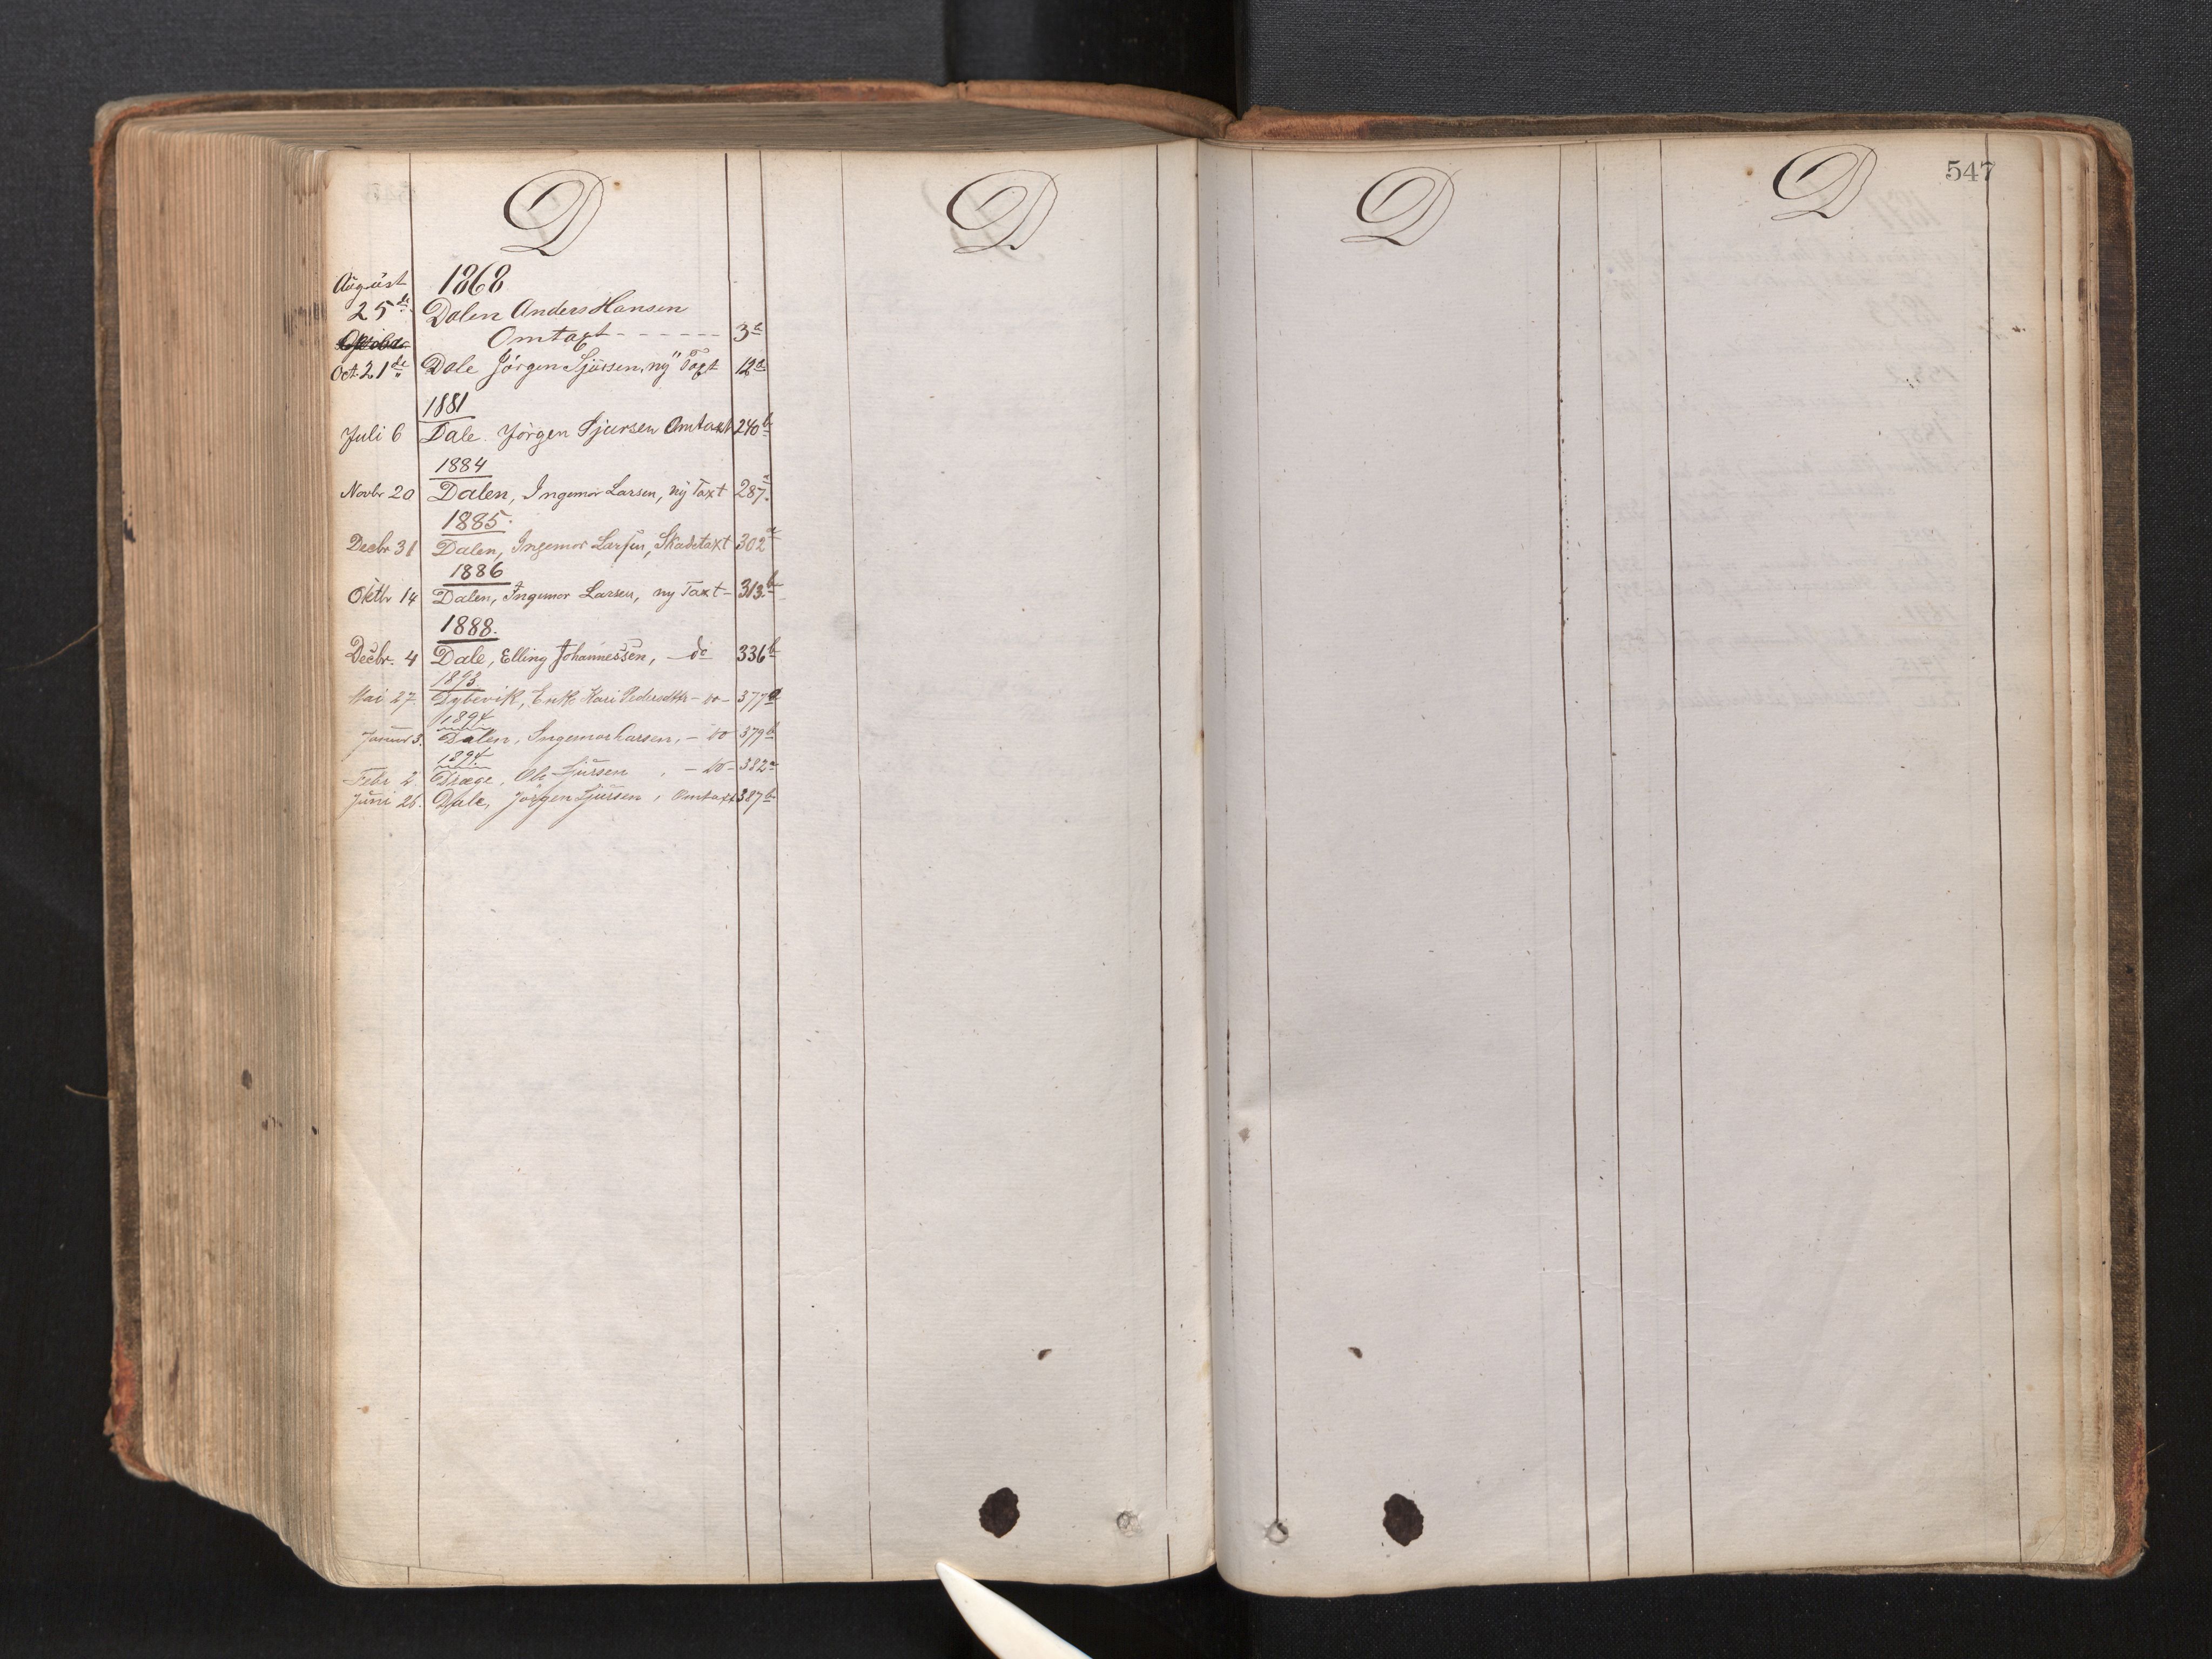 D
D
D
D
547
August 1868
25de Dalen Anders Hansen
Omtaxt - - - - - - 3a
Oct. 21de Dale Jörgen Sjursen, ny Taxt 12a
1881
Juli 6 Dale. Jörgen Sjursen Omtaxt 240b
1884
Novbr 20 Dalen, Ingemor Larsen, ny Taxt 287a
1885.
Decbr 31 Dalen, Ingemor Larsen, Skadetaxt 302a
1886
Oktbr 14 Dalen, Ingemor Larsen, ny Taxt - 313b
1888.
Decbr. 4 Dale, Elling Johannessen, - do 336b
1893
Mai 27. Dybevik, Enke Kari Pedersdttr - do - 377a
1894
Januar 3. Dalen, Ingemor Larsen, - do 379b
1894
Febr 2. Drage, Ole Sjursen, - do - 382a
Juni 26. Dale, Jörgen Sjursen, Omtaxt 387b